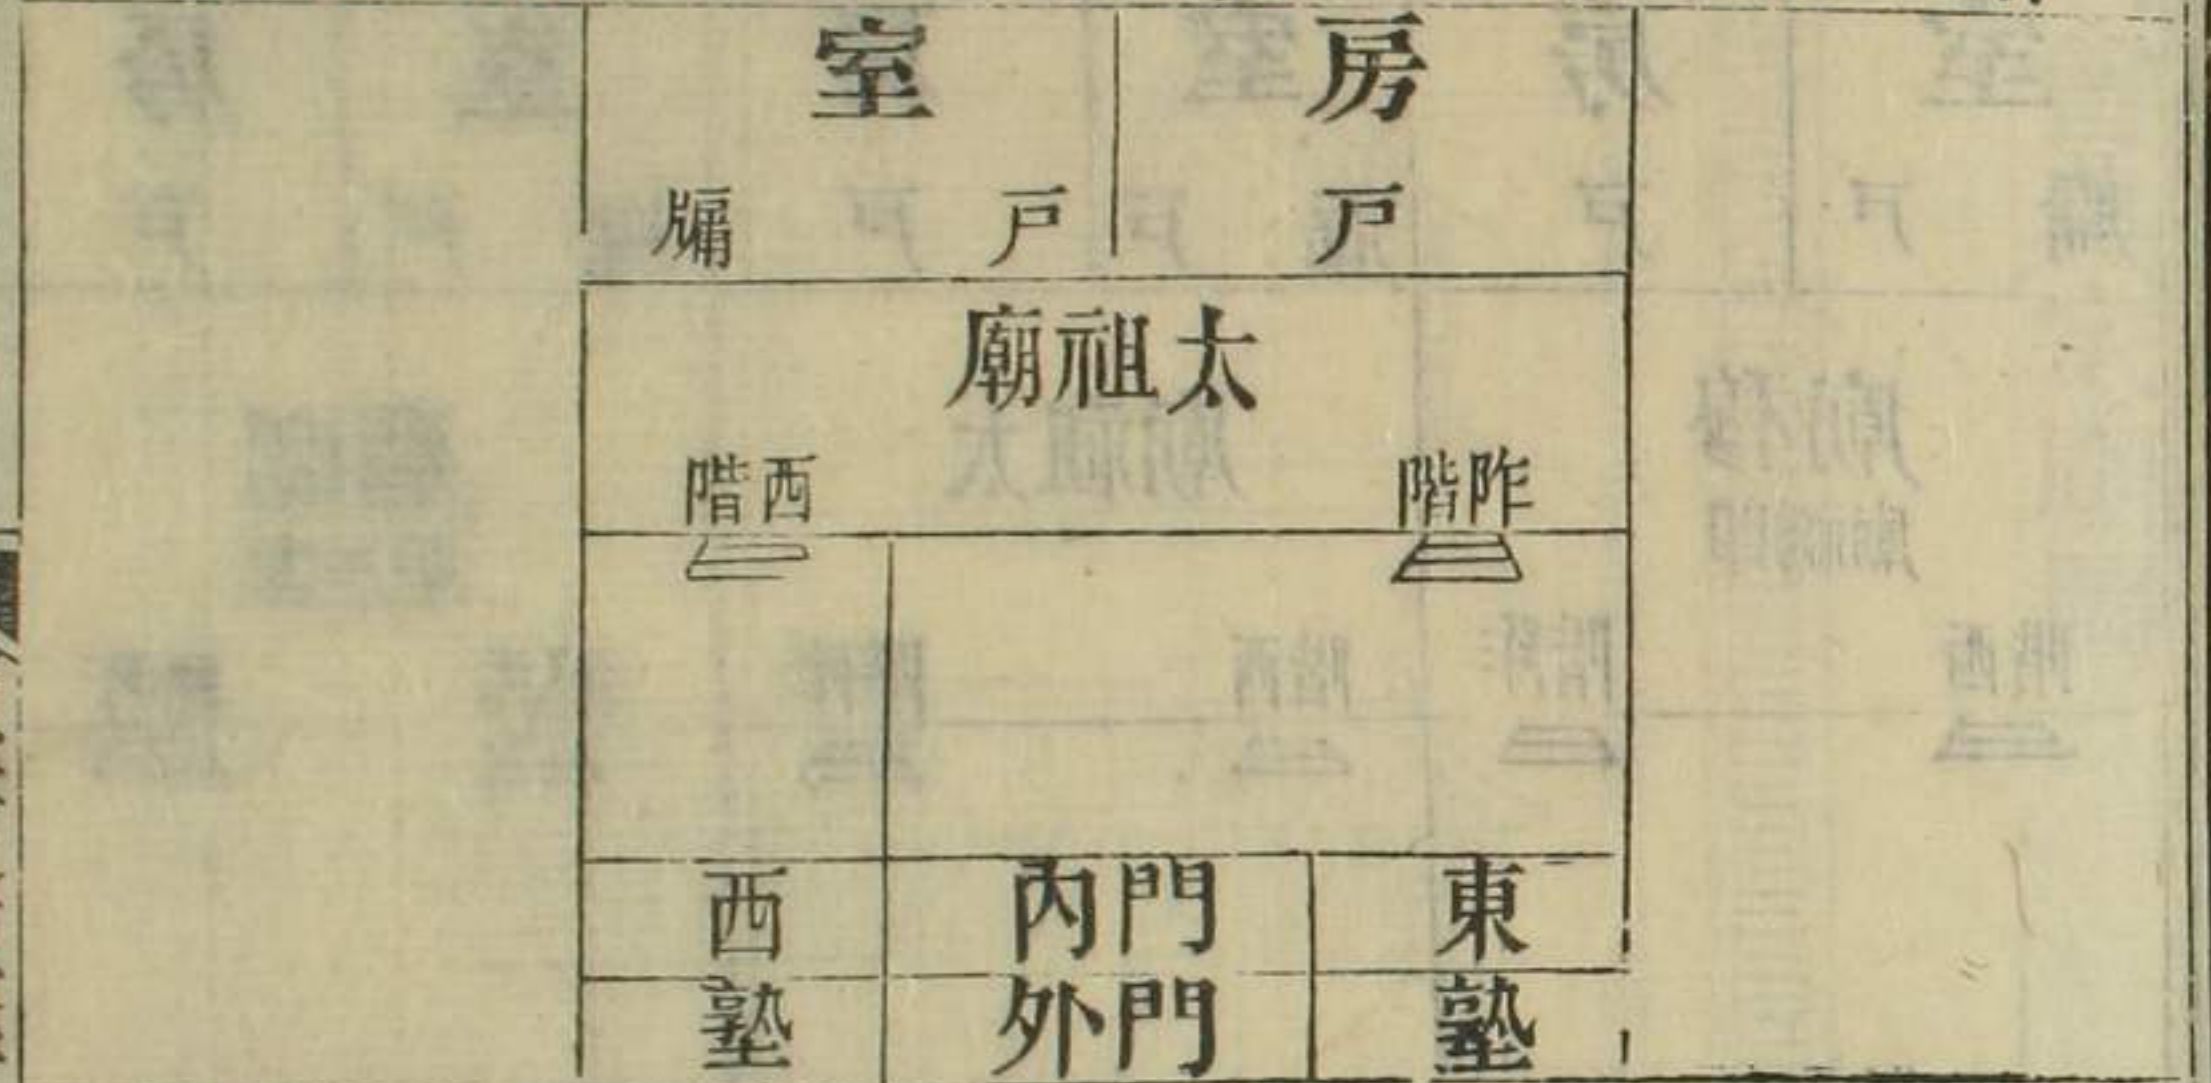 房
室
戶
戶
牖
太祖廟
阼階
西階
東塾
門內
門外
西塾